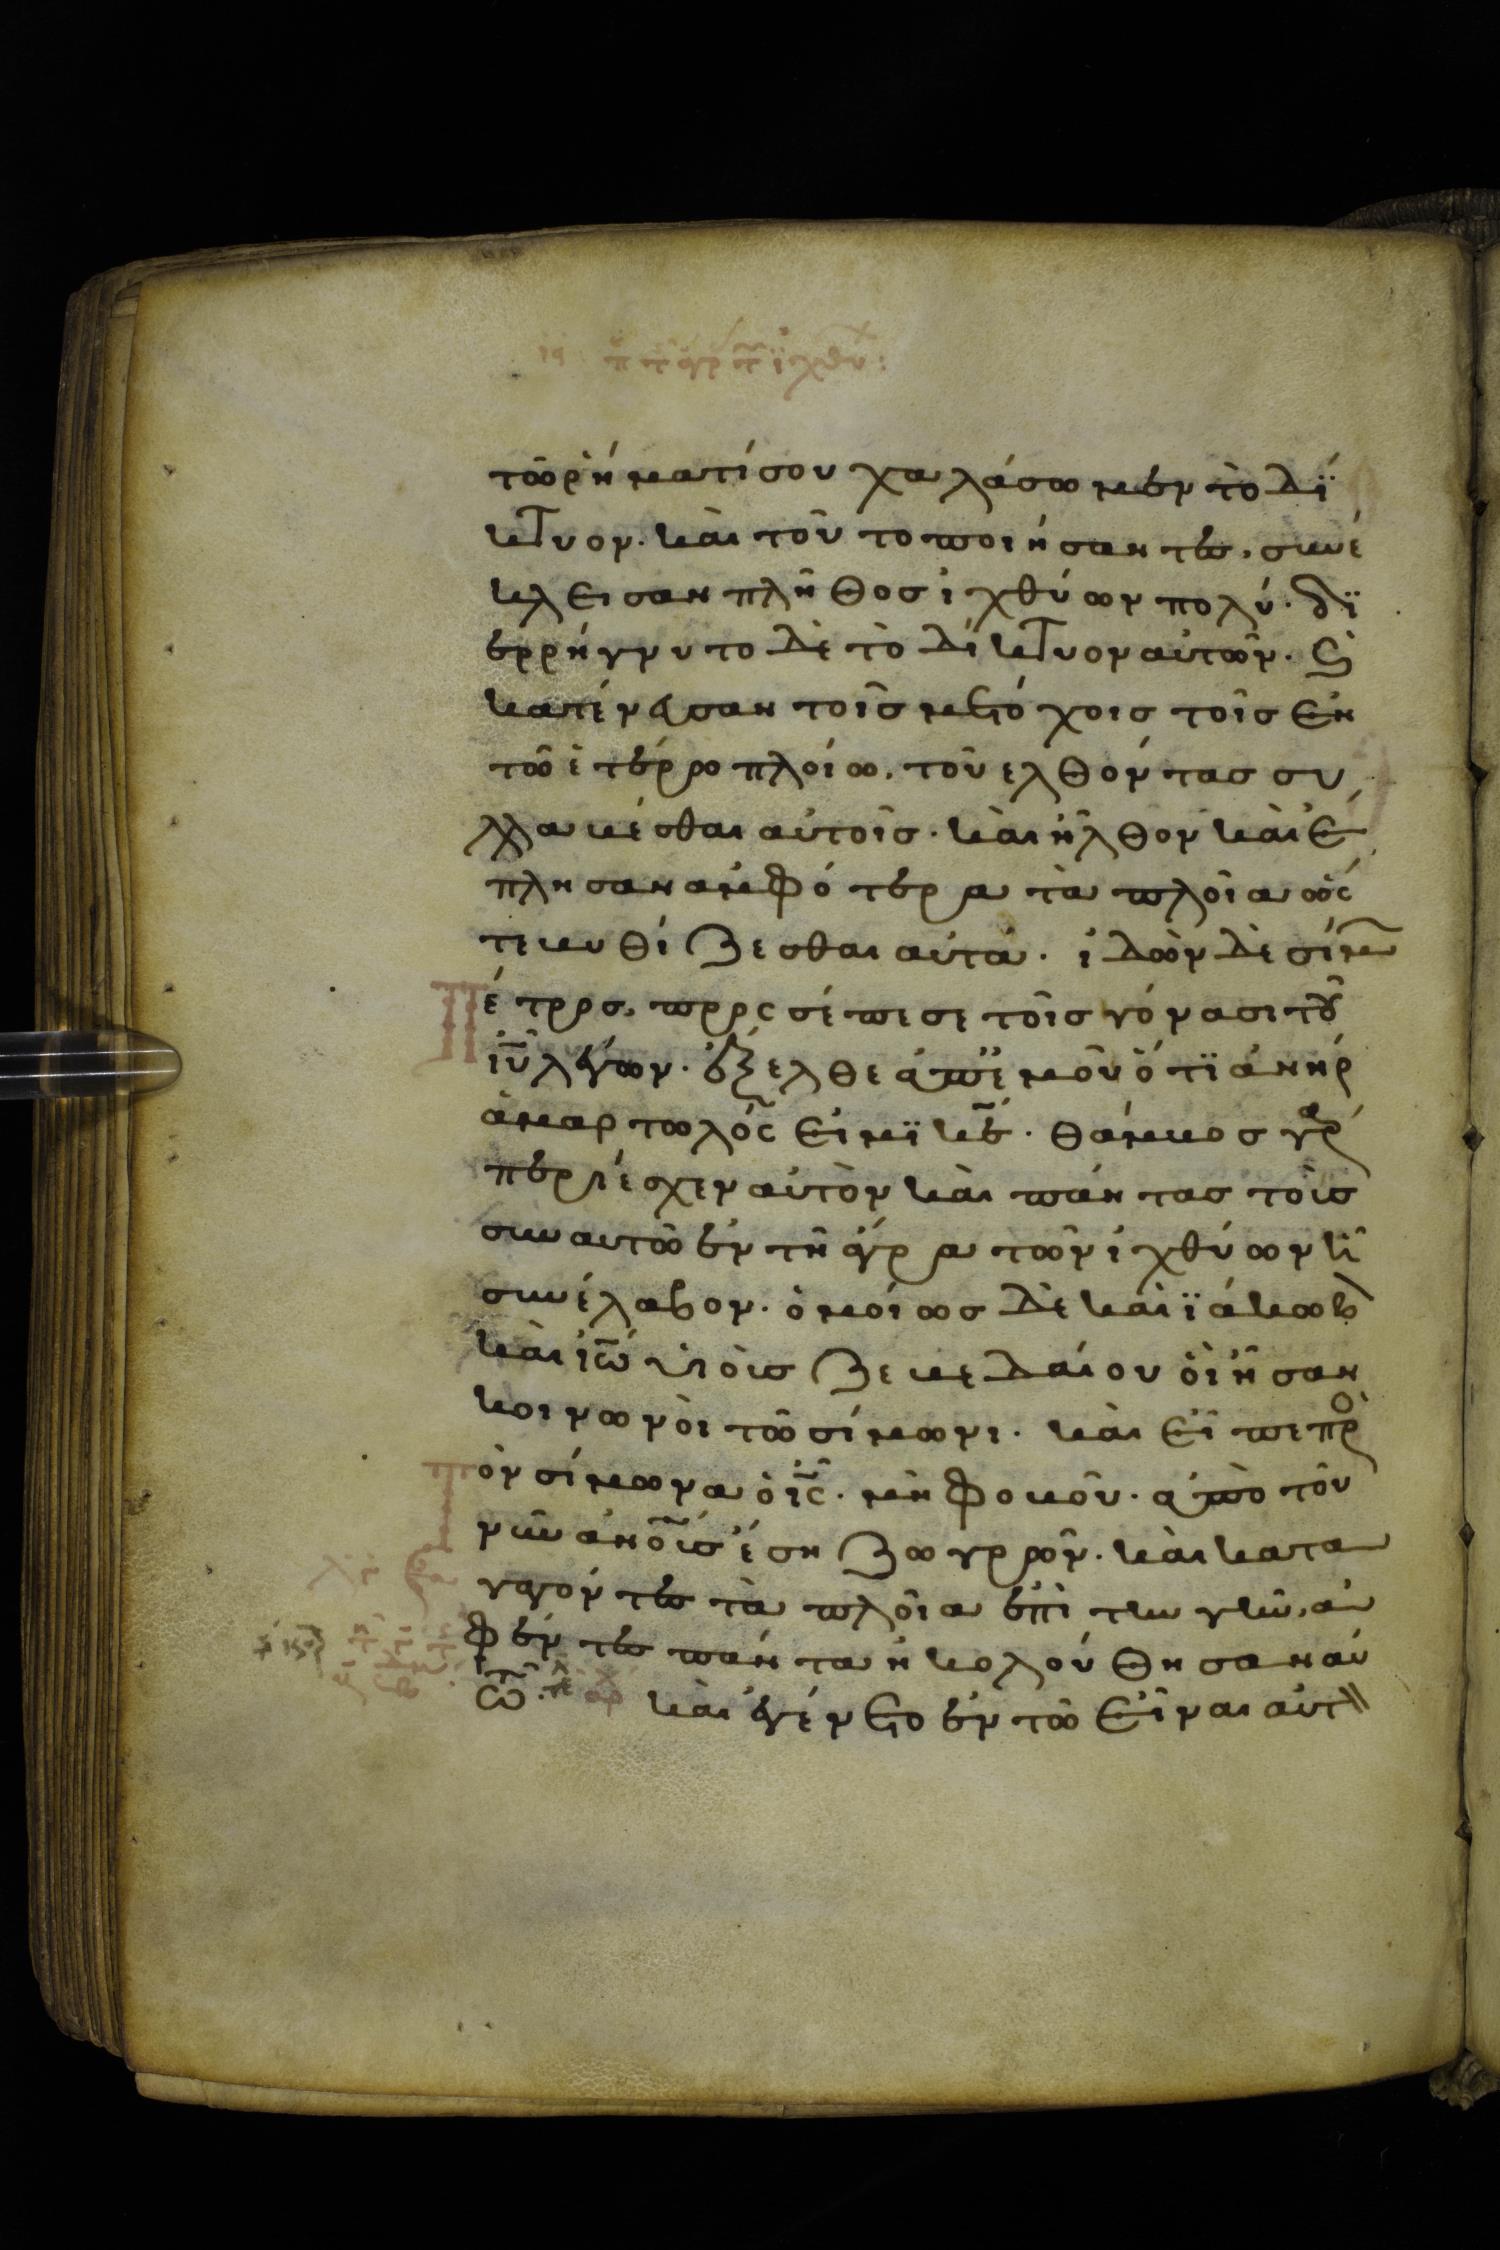 τῶ ῥήματί σου χαλάσωμεν τὸ δί
κτυον. καὶ τοῦτο ποιήσαντες, συνέ
κλεισαν πλῆθος ἰχθύων πολύ. δϊ
ερρήγνυτο δὲ τὸ δίκτυον αὐτῶν. ϗ
κατένευσαν τοῖς μετόχοις τοῖς ἐν
τῶ ἑτέρω πλοίω. τοῦ ἐλθόντας συ
λλαβέσθαι αὐτοῖς. καὶ ἦλθον καὶ ἔ
πλησαν ἀμφότερα τὰ πλοῖα ὥς
τε βυθίζεσθαι αὐτά. ἰδὼν δὲ σίμ
Πέτρος, προσέπεσε τοῖς γόνασι τοῦ
ἰῦ λέγων. ἔξελθε ἀπ' ἐμοῦ ὅτϊ ἀνὴρ
ἁμαρτωλός εἰμϊ κε. θάμβος γρ
περιέσχεν αὐτὸν καὶ πάντας τοὺς
συν αυτῶ ἐν τῆ ἄγρα τῶν ἰχθύων ἧ
συνέλαβον. ὁμοίως δὲ καὶ ϊάκωβ
καὶ ἰω υἱοὺς ζεβεδαίου οἳ ἦσαν
κοινωνοὶ τῶ σίμωνι. καὶ εἶπε πρ
Τὸν σίμωνα ὁ ις. μὴ φοβοῦ. ἀπὸ τοῦ
νῦν ἀνους ἔση ζωγρῶν. καὶ κατα
γαγόντες τὰ πλοῖα ἐπὶ τὴν γῆν, ἀ
φέντες πάντα ἠκολούθησαν αὐ
τῶ. καὶ ἐγένετο ἐν τῶ εἶναι αὐτ